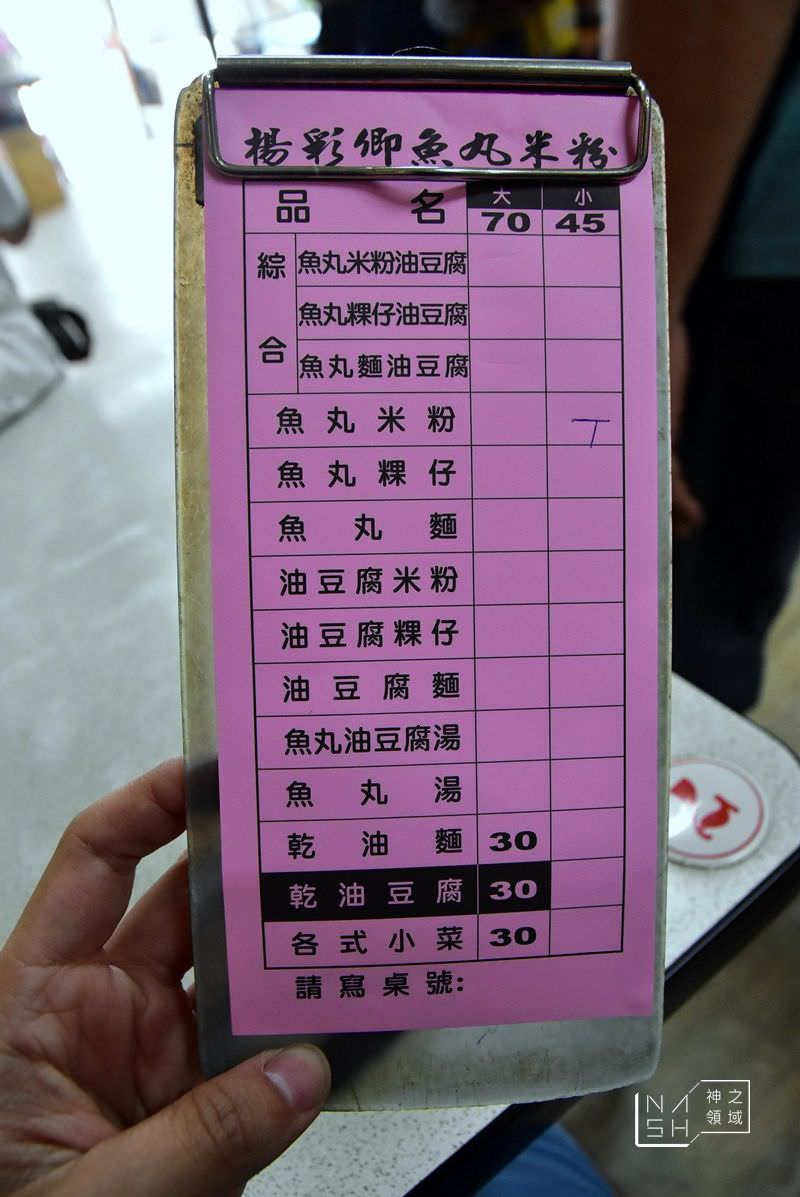 楊彩卿魚丸米粉
品名 大 小
70 45
綜合 魚丸米粉油豆腐
魚丸粿仔油豆腐
魚丸麵油豆腐
魚丸米粉 ㄒ
魚丸粿仔
魚丸麵
油豆腐米粉
油豆腐粿仔
油豆腐麵
魚丸油豆腐湯
魚丸湯
乾油麵 30
乾油豆腐 30
各式小菜 30
請寫桌號:
NASH 神之領域